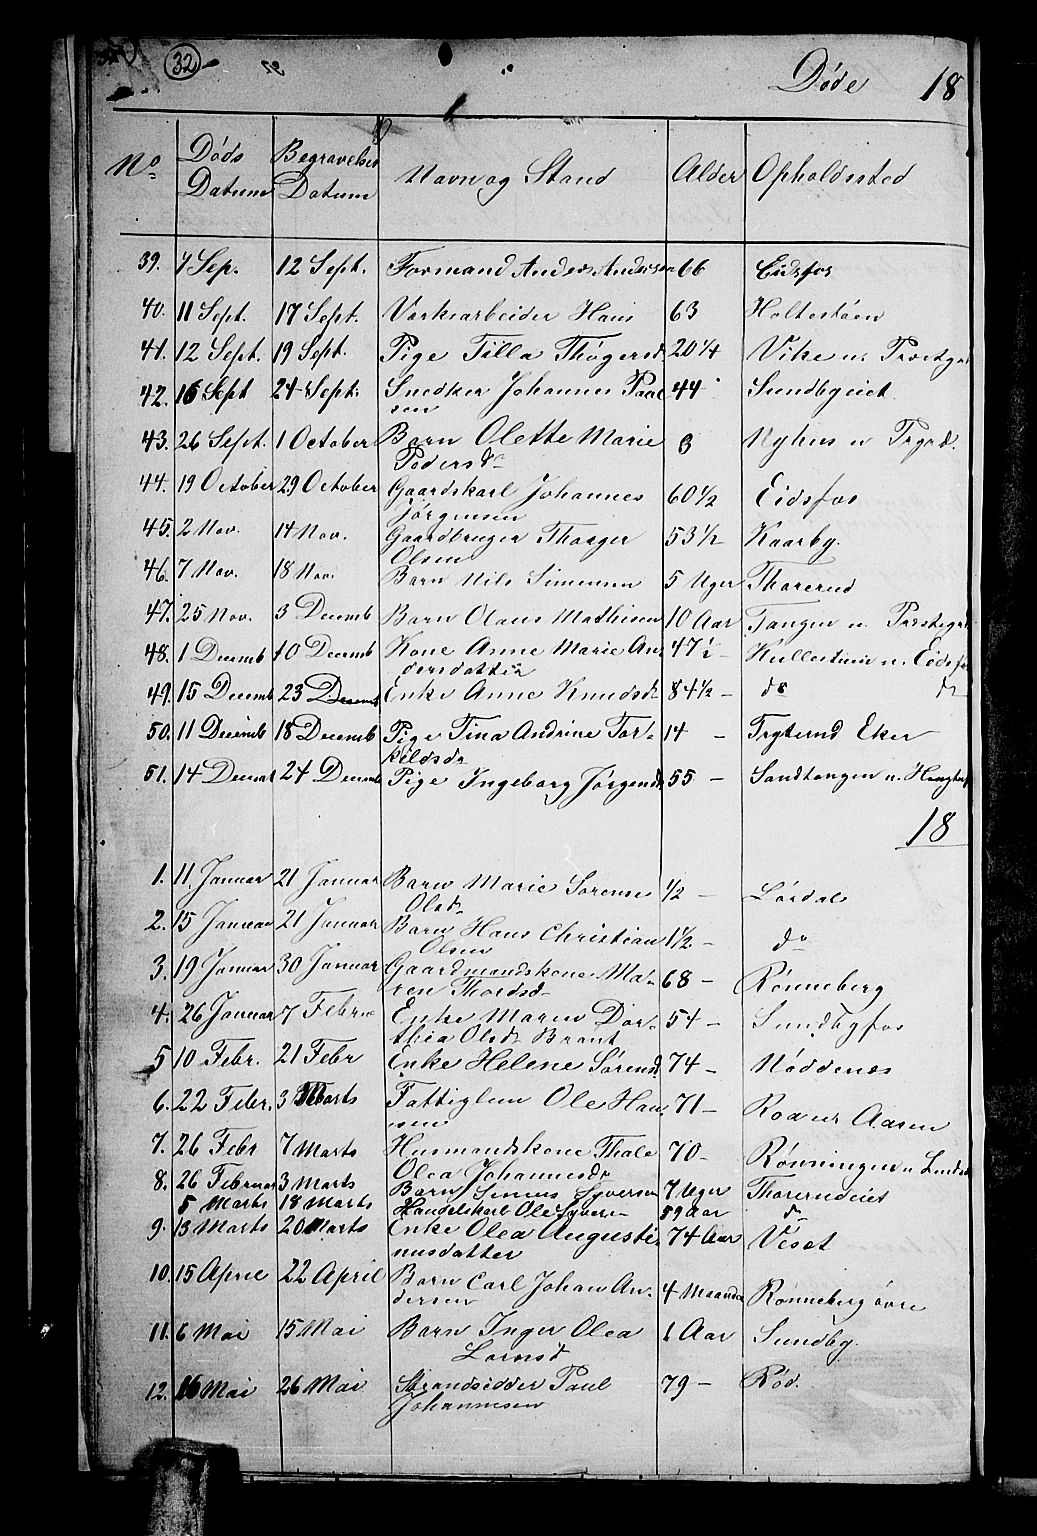 32
Døde 18
No Døds Datum Begravelses Datum Navn og Stand Alder Opholdssted
39. 7 Sep. 12 Sept. Formand Anders Andersen 66 Eidsfos
40. 11 Sept. 17 Sept. Værksarbeider Hans 63 Holtestøen
41. 12 Sept. 19 Sept. Pige Tilla Thøgersd 20 1/4 Vike u. Præstgd
42. 16 Sept 24 Sept. Snedker Johannes Paul 44 Sundbyeiet
sen
43. 26 Sept. 1 October Barn Olette Marie 8 Nyhus u Prgrd.
Pedersdr
44. 19 October 29 October Gaardskarl Johannes 60 1/2 Eidsfos
Jørgensen
45. 2 Nov. 14 Nov. Gaardbruger Thorger 53 1/2 Kaarby.
Olsen
46. 7 Nov. 18 Nov. Barn Nils Simensen 5 Uger Thorerud
47. 25 Nov. 3 Decemb Barn Olaus Mathisen 10 Aar Tangen u. Præstegrd
48. 1 Decemb 10 Decemb Kone Anne Marie An 47 1/2 - u. Eidsfos
dersdatter
49. 15 Decemb 23 Decemb Enke Anne Knudsdr 84 1/2 - do do
50. 11 Decemb 18 Decemb Pige Tina Andrine Tor- 14 - Tryterud Eker
kildsdr
51. 14 Decemb 24 Decemb Pige Ingeborg Jørgensdr 55 - Sandtangen u.
18
1. 11. Januar 21 Januar Barn Marie Sørense 1/2 - Lørdal
Olsdr
2. 15 Januar 21 Januar Barn Hans Christian 1 1/2 - do
Olsen
3. 19 Januar 30 Januar Gaardmandskone Ma- 68 - Rønneberg
ren Thordsdr
4. 26 Januar 7 Febru Enke Maren Dor- 54 - Sundbyfos
thea Olsdr Brant
5 10 Febr. 21 Febr Enke Helene Sørensd 74 - Nøddenes
6. 22 Febr. 3 Marts Fattiglem Ole Han 71 - Roa ur Aasen
sen
7. 26 Febr 7 Marts Husmandskone Thale 70 - Rønningen u
Olea Johannesdr
8. 26 Februar 3 Marts Barn Simen Syversen 7 Uger Thorerudeiet
5 Marts 18 Marts Handelskarl Ole Syvers 59 Aar do
9. 13 Marts 20 Marts Enke Olea Augusti 74 Aar Veset
nusdatter
10. 15 April 22 April Barn Carl Johan An- 4 Maaneder Rønneberg øvre
dersen
11. 6 Mai 15 Mai Barn Inger Olea 1 Aar Sundby.
Larsd
12. 16 Mai 26 Mai Strandsidder Paul 79 - Rød.
Johannesen